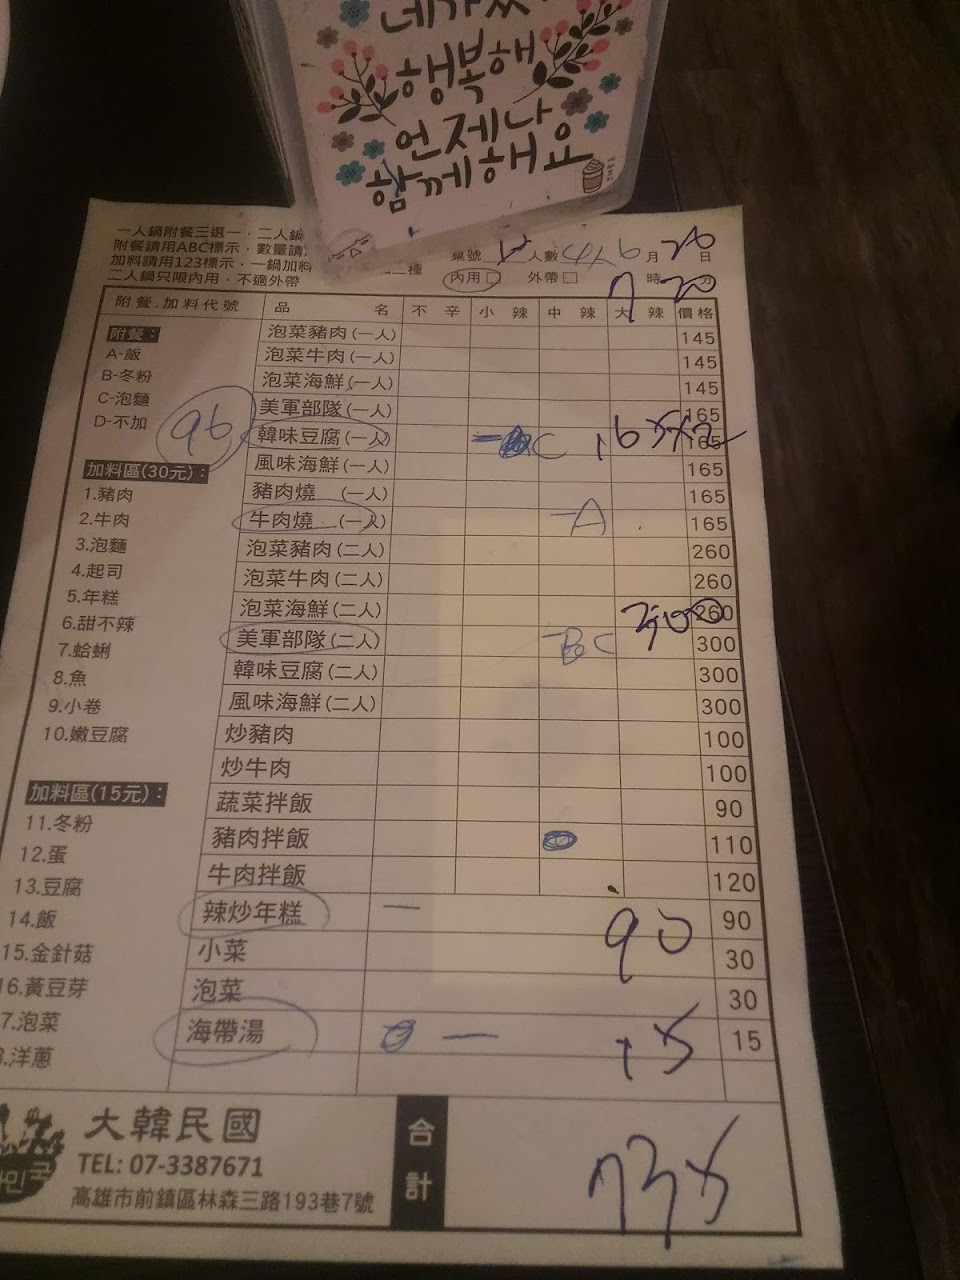 행복해
언제나
함께해요
一人鍋附餐三選一．二人鍋
附餐請用ABC標示，數量請
加料請用123標示，一鍋加料 二種
二人鍋只限內用，不適外帶
桌號 人數 6 月 26 日
內用□ 外帶□ 7 時 20 分
附餐.加料代號 品名 不辛 小辣 中辣 大辣 價格
附餐：
A-飯
B-冬粉
C-泡麵
D-不加
96
加料區(30元)：
1.豬肉
2.牛肉
3.泡麵
4.起司
5.年糕
6.甜不辣
7.蛤蜊
8.魚
9.小卷
10.嫩豆腐
加料區(15元)：
11.冬粉
12.蛋
13.豆腐
14.飯
15.金針菇
16.黃豆芽
7.泡菜
洋蔥
泡菜豬肉(一人) 145
泡菜牛肉(一人) 145
泡菜海鮮(一人) 145
美軍部隊(一人) 165
韓味豆腐(一人) 一 C 165x2 165
風味海鮮(一人) 165
豬肉燒 (一人) 165
牛肉燒 (一人) 一A 165
泡菜豬肉(二人) 260
泡菜牛肉(二人) 260
泡菜海鮮(二人) 260
美軍部隊(二人) 一B C 300 300
韓味豆腐(二人) 300
風味海鮮(二人) 300
炒豬肉 100
炒牛肉 100
蔬菜拌飯 90
豬肉拌飯 110
牛肉拌飯 120
辣炒年糕 一 90 90
小菜 30
泡菜 30
海帶湯 一 15 15
大韓民國
TEL: 07-3387671
高雄市前鎮區林森三路193巷7號
合計 735